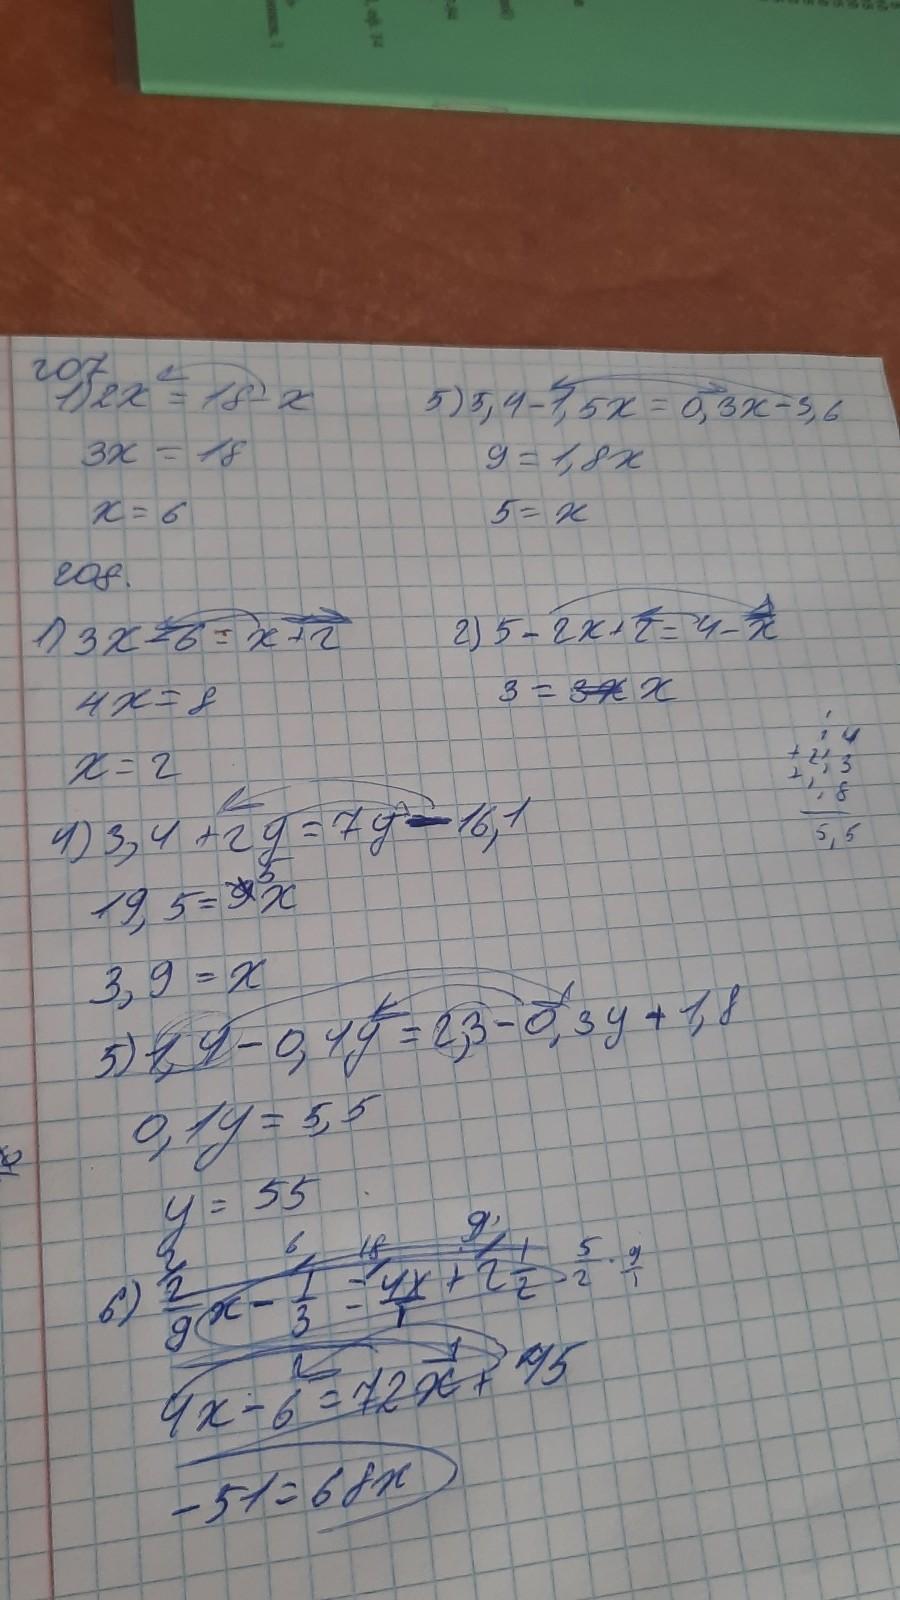 207
1) 2x = 18 - x
3x = 18
x = 6
5) 5,4 - 1,5x = 0,3x - 3,6
9 = 1,8x
5 = x
208.
1) 3x - 6 = x + 2
4x = 8
x = 2
2) 5 - 2x + 2 = 4 - x
3 = x
4) 3,4 + 2y = 7y - 16,1
19,5 = 5x
3,9 = x
5) 1,4 - 0,4y = 2,3 - 0,3y + 1,8
0,1y = 5,5
y = 55
5,5
6) 2/9 x - 1/3 = 4x/1 + 2 1/2
6 18 9
5/2 · 9/1
4x - 6 = 72x + 45
-51 = 68x